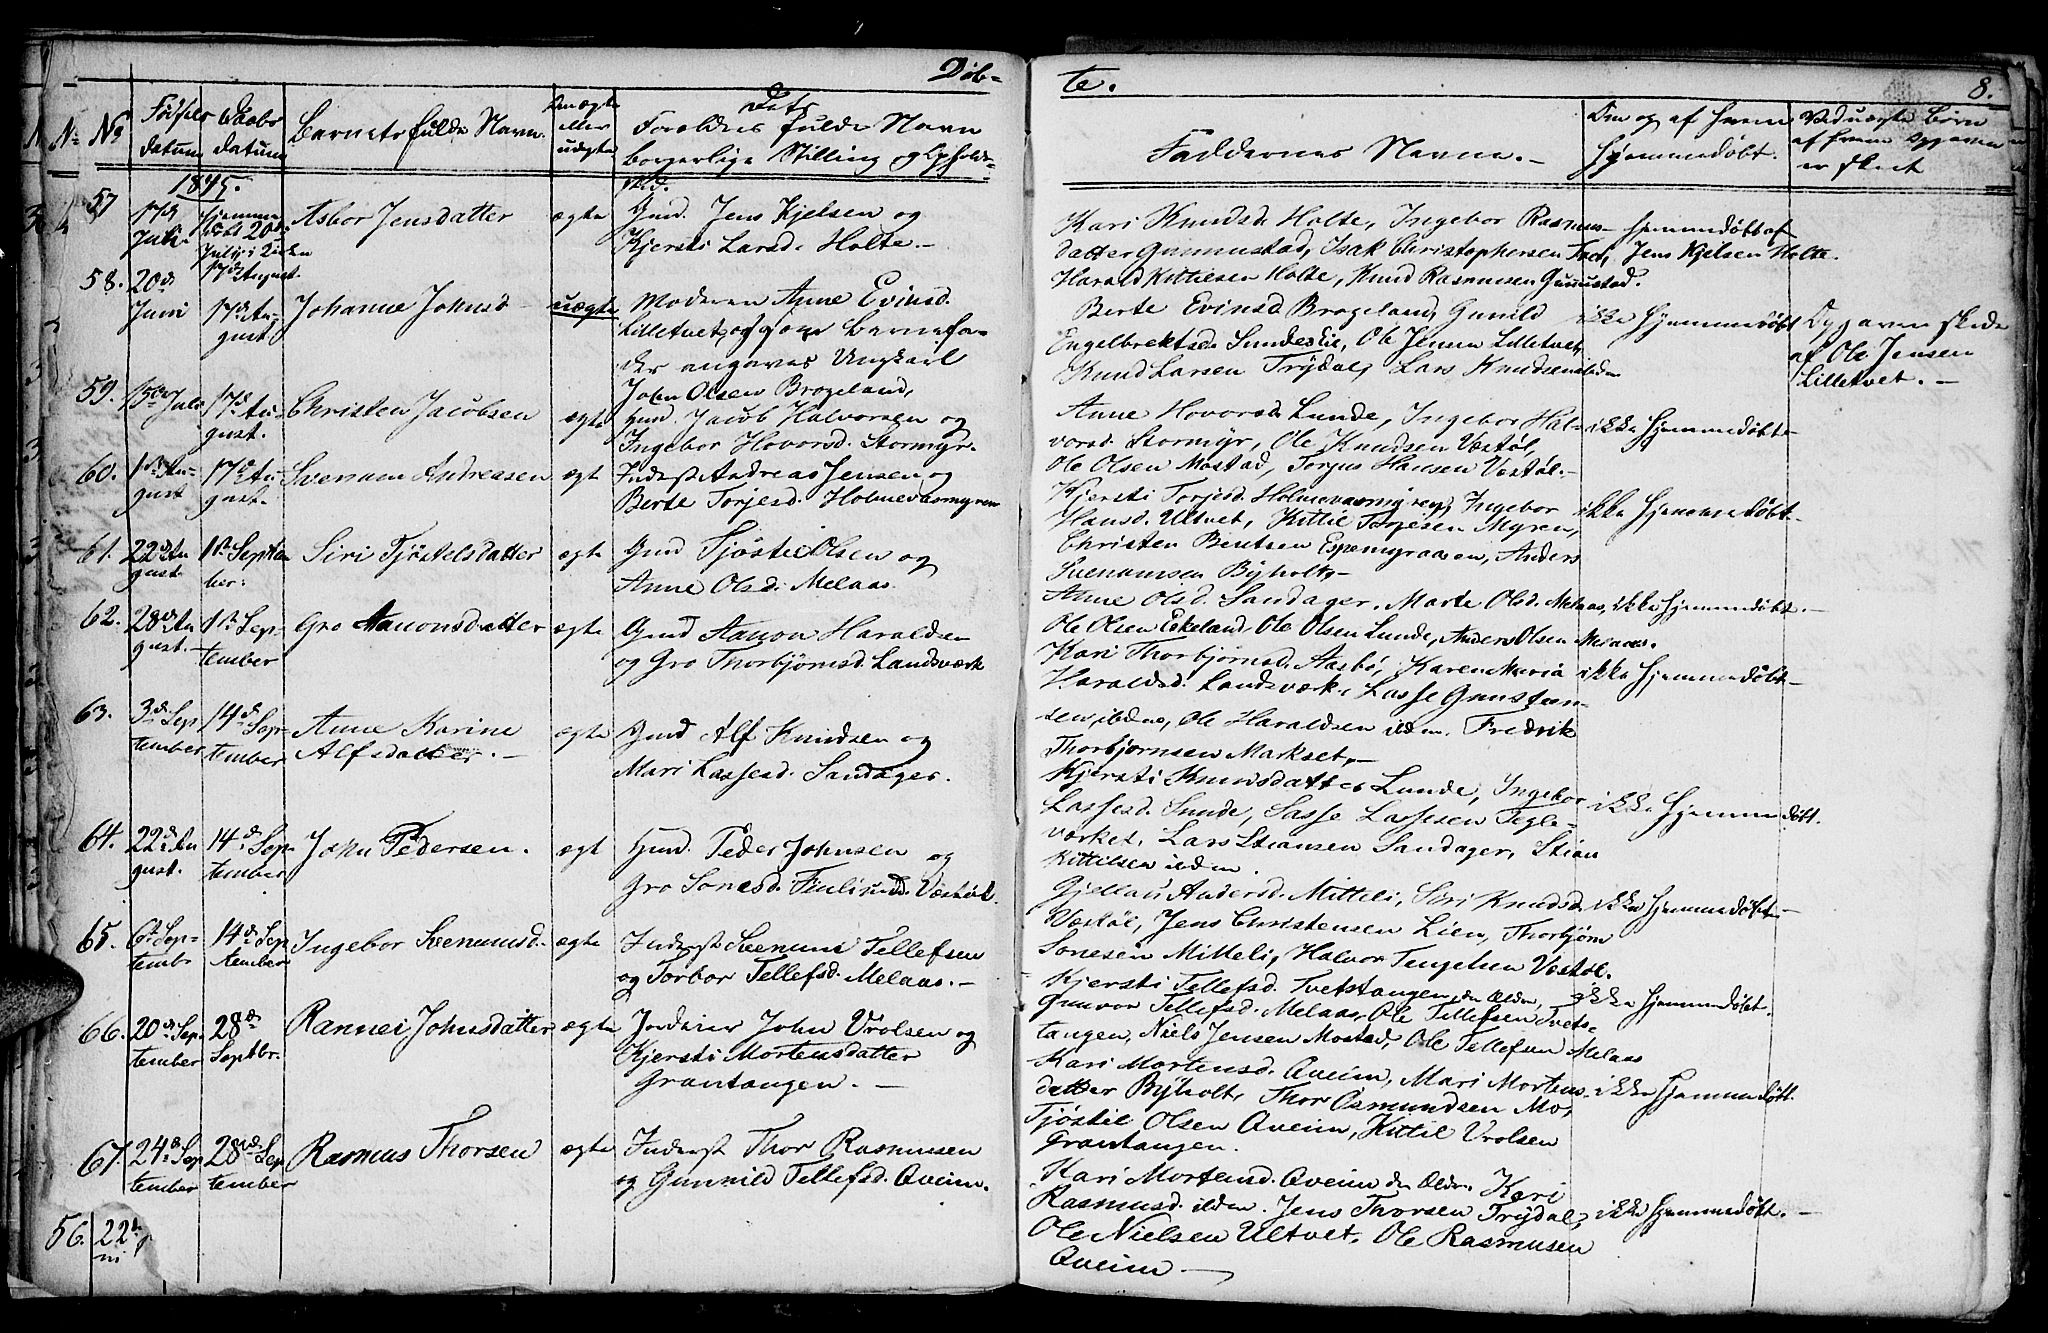 Døb-
te.
8.
No
No
Fødsels
datum
Daabs
datum
Barnets fulde Navn.
Om ægte
eller
uægte
Dets
Forældres fulde Navn
borgerlige Stilling og Opholds-
sted.
Faddernes Navne.
Om og af hvem
hjemmedøbt.
Ved uægte Børn
af hvem Opgaven
er skeet
1845.
57
17de
Juli
hjemme
døbt 20de
Julii i Kirken
17de August.
Asbor Jensdatter
ægte
Gmd. Jens Kjelsen og
Kjersti Larsd. Holte.
Kari Knudsd. Holte, Ingebor Rasmus-
datter Gunnustad, Isak Christophersen
Harald Kittilsen Holte, Knud Rasmusen Gunnustad.
hjemmedøbt af
Jens Kjelsen Holte.
58.
20de
Juni
17de Au-
gust
Johanne Johnsd.
uægte
Moderen Anne Evinsd.
Lilletvet, og som Barnefa-
der angaves Ungkarl
John Olsen Brogeland,
Berte Evinsd. Brogeland, Gunild
Engelbrektsd. Sundeslie, Ole Jensen Lilletvet,
Knud Larsen Trydal, Lars Knudsen ibiden
ikke hjemmedøbt
Opgaven skede
af Ole Jensen
Lilletvet.
59.
15de Juli
17de Au-
gust.
Christen Jacobsen
ægte
Gmd. Jacob Halvorsen og
Ingebor Hovorsd. Stormyr.
Anne Hovorsd. Lunde, Ingebor Hal-
vorsd. Stormyr, Ole Knudsen Vestøl,
Ole Olsen Mostad, Torjus Hansen Vestøl.
ikke hjemmedøbt
60.
1ste Au-
gust
17de Au-
gust.
Svenum Andreasen
ægt
Inderst Andreas Jensen og
Berte Torjesd. Holmevasmyren
Kjersti Torjesd. Holmevasmyren, Ingebor
Hansd. Ultvet, Kittil Torjesen Myren,
Christen Bentsen Espemyraaen, Anders
Svenumsen Byholt
ikke hjemmedøbt
61.
22de Au
gust
1ste Septem
ber.
Siri Tjøstelsdatter
ægte
Gmd Tjøstil Olsen og
Anne Olsd. Melaas.
Anne Olsd. Sandager, Marte Olsd. Melaas,
Ole Olsen Eskeland, Ole Olsen Lunde, Anders Olsen Melaas.
ikke hjemmedøbt.
62.
28de Au
gust.
1ste Sep-
tember
Gro Aanonsdatter
ægte
Gmd Aanon Haraldsen
og Gro Thorbjørnsd. Landsværk
Kari Thorbjørnsd. Aasbø, Karen Maria
Haraldsd. Landsværk, Lasse Gunsteen-
sen, ibdm, Ole Haraldsen ibdm. Fredrik
Thorbjørnsen Markset,
ikke hjemmedøbt
63.
3de Sep
tember
14de Sep-
tember
Anne Karine
Alfsdatter.
ægte
Gmd Alf Knudsen og
Mari Lassesd. Sandager.
Kjersti Knudsdatter Lunde, Ingebor
Lassesd. Sunde, Lasse Lassesen Tegle-
værket, Lars Stiansen Sandager, Stian
Kittilsen ibdm.
ikke hjemmedøbt.
64.
22de Au
gust.
14de Sep
tember
John Pedersen.
ægt
Gmd. Peder Johnsen og
Gro Sonesd. Vestøl.
Gjellau Andersd. Mitteli, Siri Knudsd
Vestøl, Jens Christensen Lien, Thorbjørn
Sonesen Mitteli, Halvor Tengelsen Vestøl.
ikke hjemmedøbt
65.
6te Sep-
tembr
14de Sep
tember
Ingebor Svenumsd.
ægte
Inderst Svenum Tellefsen
og Torbor Tellefsd. Melaas.
Kjersti Tellefsd. Tvetstangen den Ældre,
Gunvor Tellefsd. Melaas, Ole Tellefsen Tvets-
tangen, Niels Jensen Mostad, Ole Tellefsen Melaas
ikke hjemmedøbt.
66.
20de Sep
tember
28de
Septbr.
Rannei Johnsdatter
ægte
Jordeier John Vrolsen og
Kjersti Mortensdatter
Grantangen.
Kari Mortensd. Aveim, Mari Mortens-
datter Byholt, Thor Osmundsen Mo,
Tjøstil Olsen Aveim, Kittil Vrolsen
Grantangen.
ikke hjemmedøbt
67.
24de Sep
tember
28de Sep
tember
Rasmus Thorsen
ægte
Inderst Thor Rasmusen
og Gunnild Tellefsd. Aveim.
Kari Mortensd. Aveim den Ældr. Kari
Rasmusd. ibdm. Jens Thorsen Trydal,
Ole Nielsen Ultvet, Ole Rasmusen
Aveim
ikke hjemmedøbt.
56.
22
ni